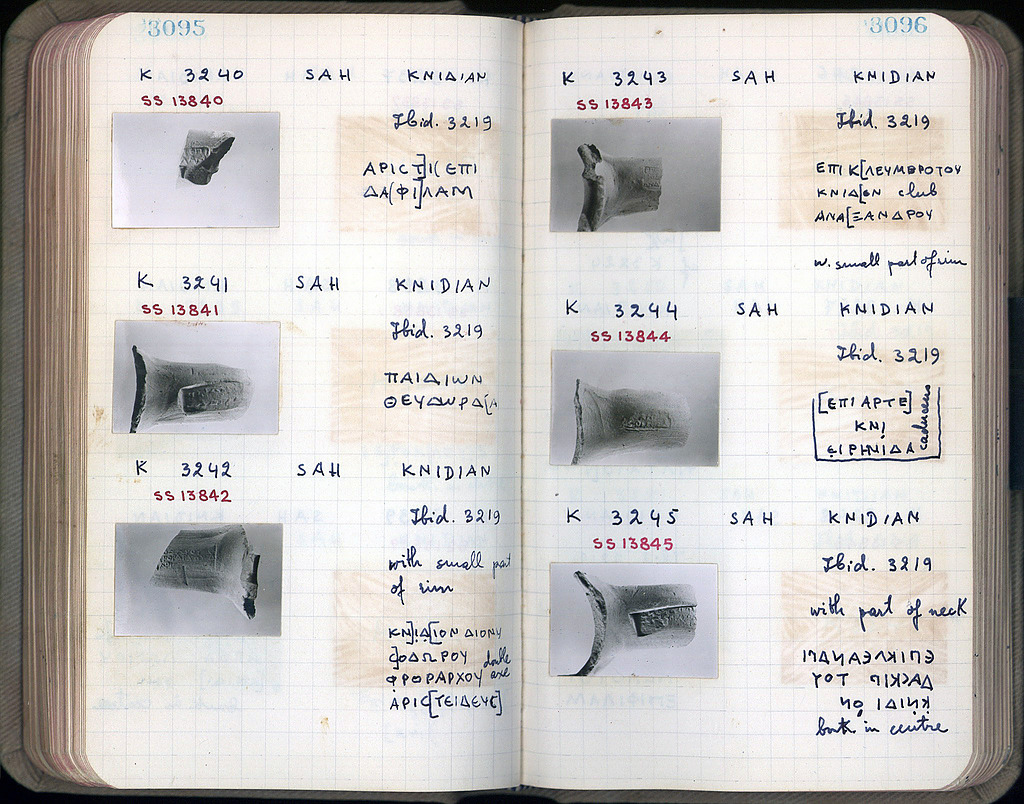 3095
K 3240 SAH KNIDIAN
SS 13840
Ibid. 3219
ΑΡΙΣΤ]Ι( ΕΠΙ
ΔΑ(ΦΙ]ΛΑΜ
K 3241 SAH KNIDIAN
SS 13841
Ibid. 3219
ΠΑΙΔΙΩΝ
ΘΕΥΔΩΡΔ(Α
K 3242 SAH KNIDIAN
SS 13842
Ibid. 3219
with small part
of rim
ΚΝ]ΙΔ[ΙΟΝ ΔΙΟΝΥ
C]ΟΔΩΡΟΥ double
ΦΡΟΡΑΡΧΟΥ axe
ΑΡΙC[ΤΕΙΔΕΥC]
3096
K 3243 SAH KNIDIAN
SS 13843
Ibid. 3219
ΕΠΙ Κ[ΛΕΥΜΒΡΟΤΟΥ
ΚΝΙΔ[ΟΝ club
ΑΝΑ[ΞΑΝΔΡΟΥ
w. small part of rim
K 3244 SAH KNIDIAN
SS 13844
Ibid. 3219
[ΕΠΙ ΑΡΤΕ]
ΚΝΙ
ΕΙΡΗΝΙΔΑ caduceus
K 3245 SAH KNIDIAN
SS 13845
Ibid. 3219
with part of neck
ΕΠΙΚΛΕΑΝΔΠ
ΔΑCΚΛΙΠ ΤΟΥ
ΚΝΙΔΙ ΟΝ
in centre